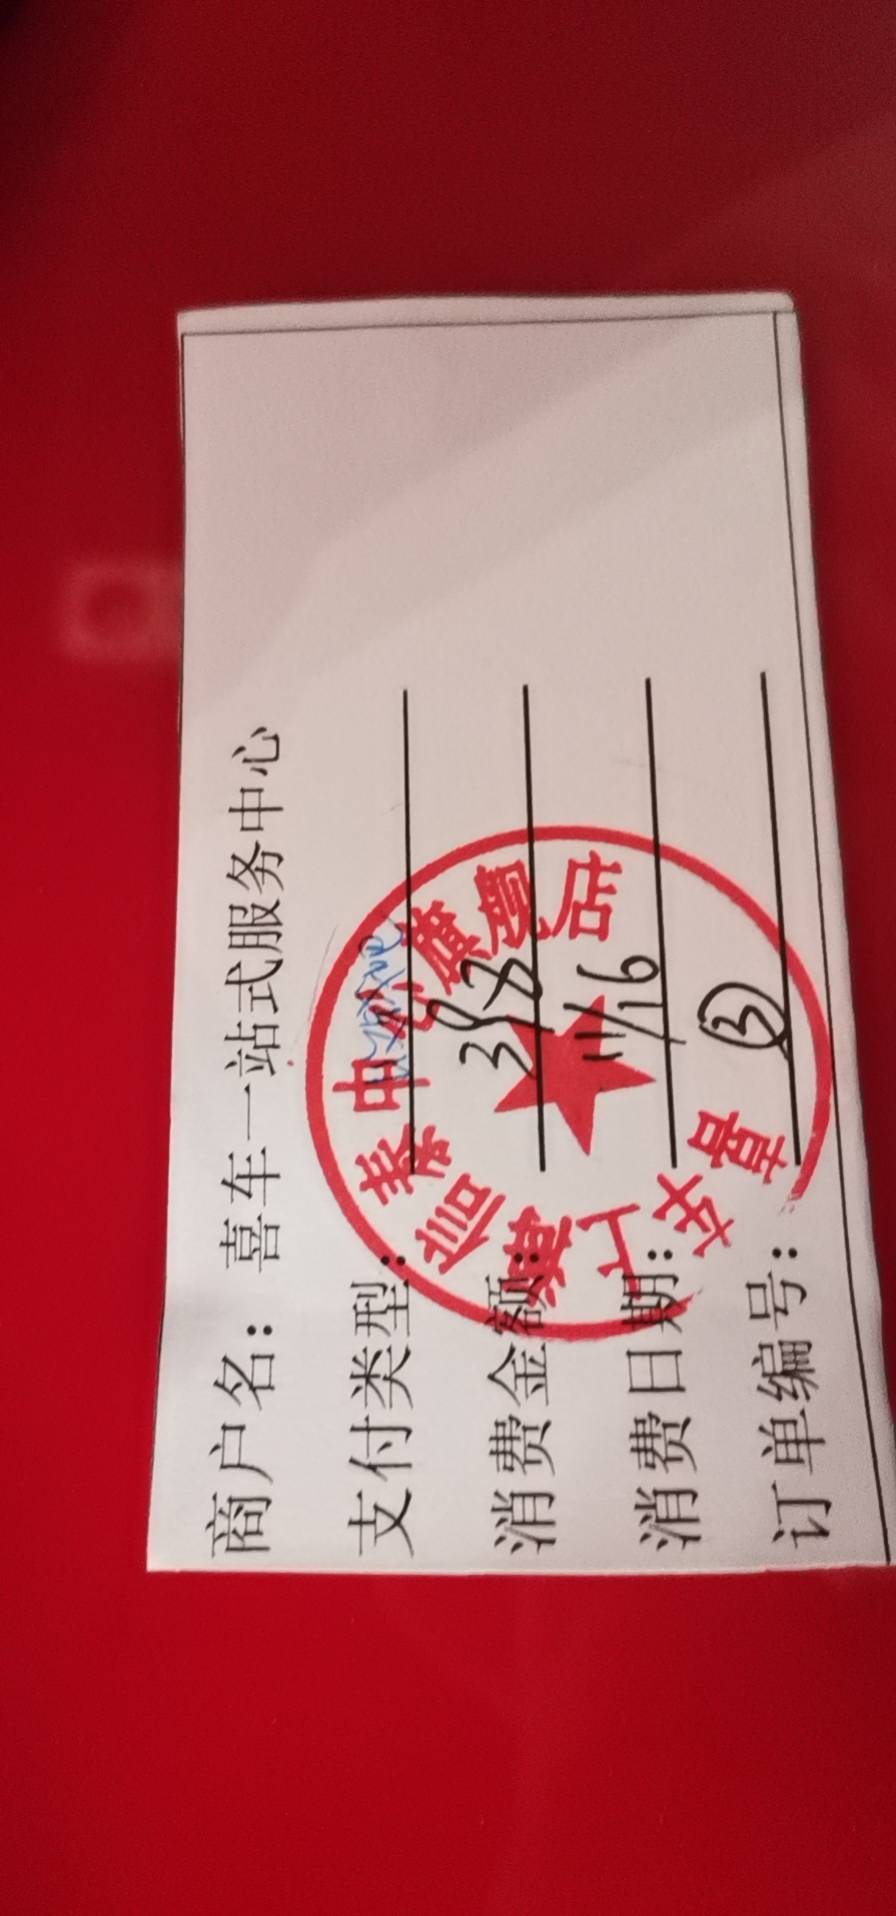 商户名：喜车一站式服务中心
支付类型：
消费金额：398
消费日期：11/16
订单编号：③
喜车上海信泰中心旗舰店